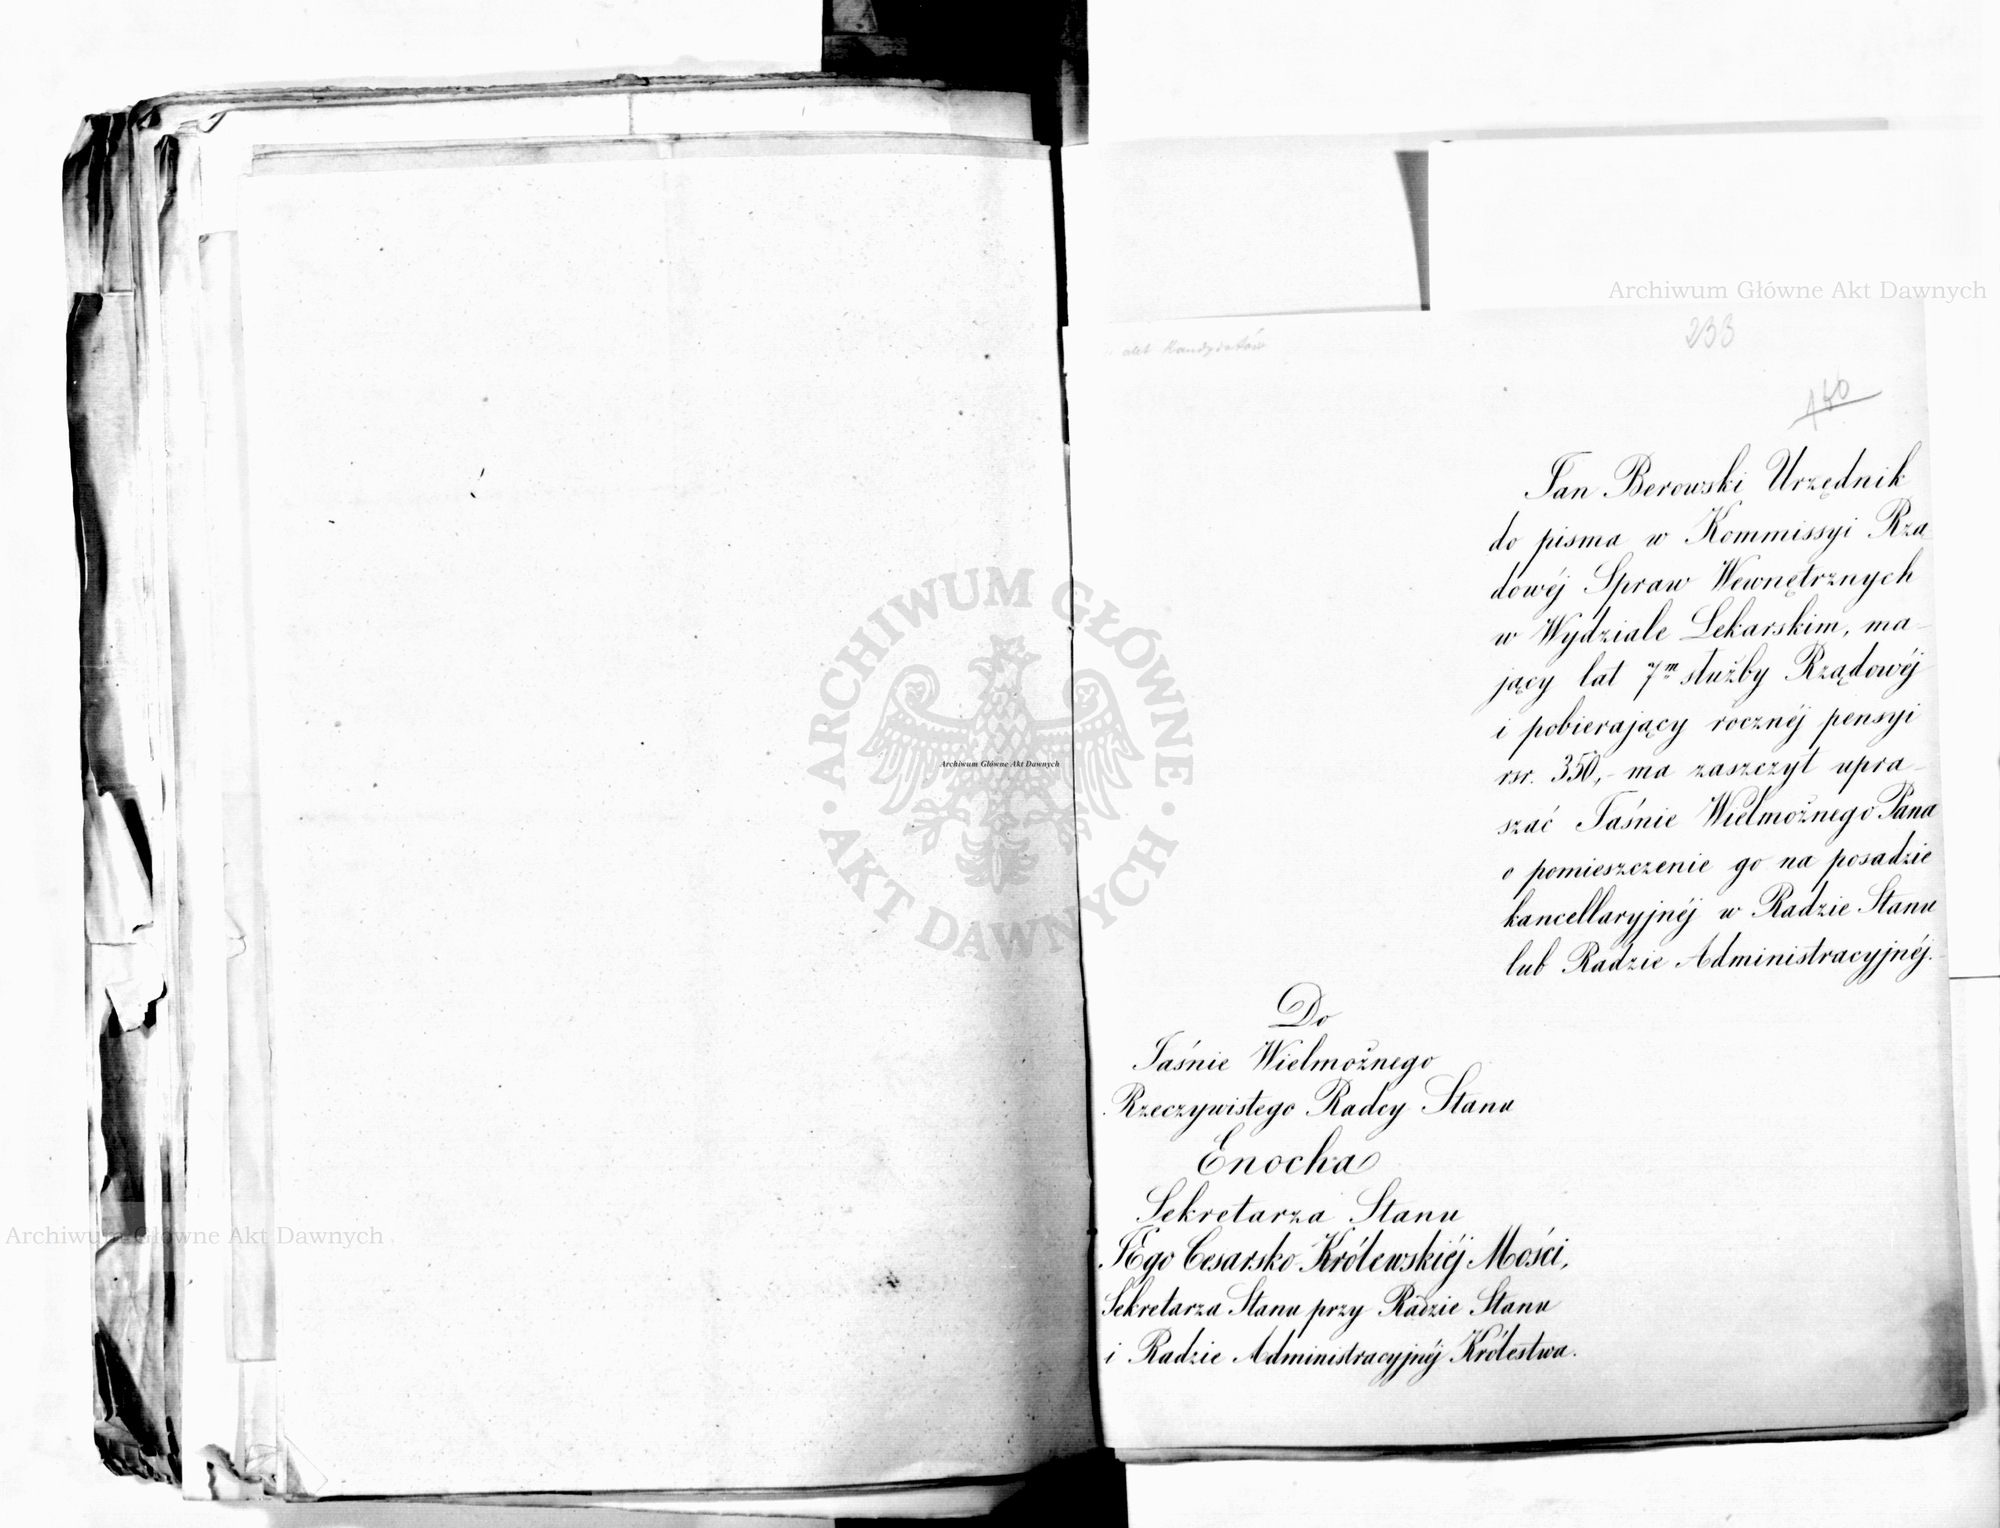 Archiwum Główne Akt Dawnych
akt Kandydatów
233
140
Jan Berowski Urzędnik
do pisma w Kommissyi Rzą
dowéj Spraw Wewnętrznych
w Wydziale Lekarskim, ma-
jący lat 7m służby Rządowéj
i pobierający rocznéj pensyi
rsr. 350,- ma zaszczyt upra-
szać Jaśnie Wielmożnego Pana
o pomieszczenie go na posadzie
kancellaryjnéj w Radzie Stanu
lub Radzie Administracyjnéj.
Do
Jaśnie Wielmożnego
Rzeczywistego Radcy Stanu
Enocha
Sekretarza Stanu
JEgo Cesarsko Królewskiéj Mości,
Sekretarza Stanu przy Radzie Stanu
i Radzie Administracyjnéj Królestwa.
ARCHIWUM GŁÓWNE
AKT DAWNYCH
Archiwum Główne Akt Dawnych
Archiwum Główne Akt Dawnych